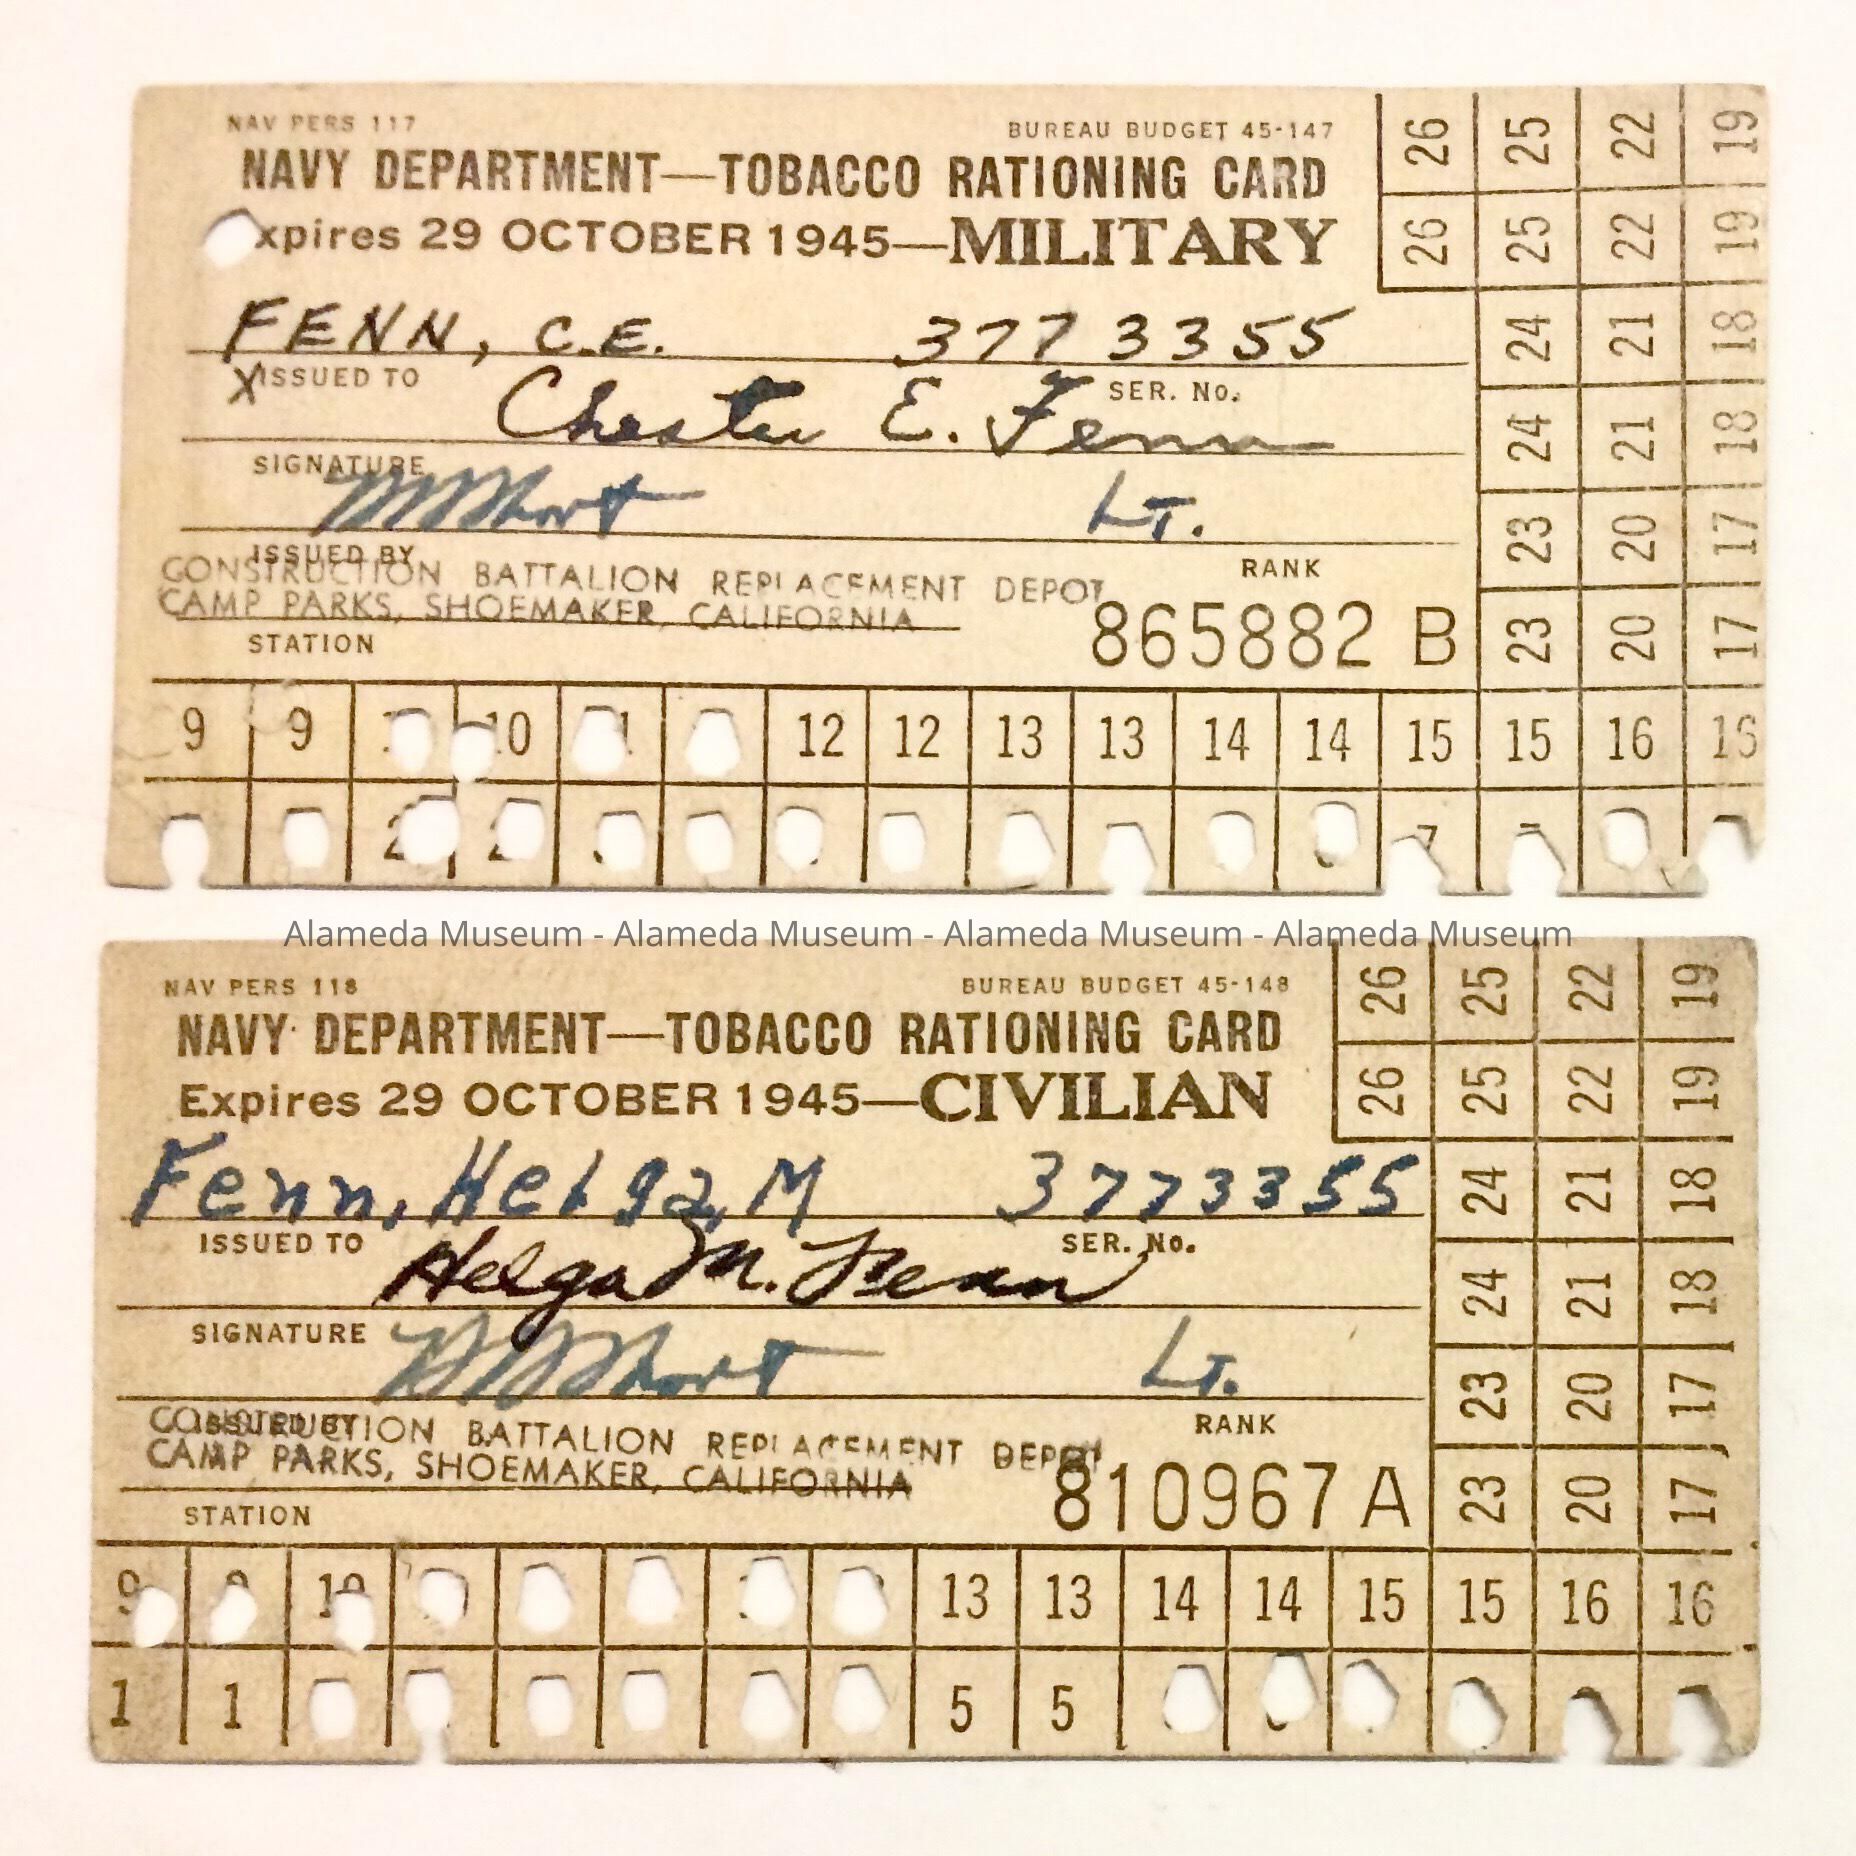 NAV PERS 117 BUREAU BUDGET 45-147
NAVY DEPARTMENT—TOBACCO RATIONING CARD
xpires 29 OCTOBER 1945—MILITARY
FENN, C.E. 377 3355
X ISSUED TO SER. No.
Chester E. Fenn
SIGNATURE
Lt.
ISSUED BY RANK
CONSTRUCTION BATTALION REPLACEMENT DEPOT
CAMP PARKS, SHOEMAKER, CALIFORNIA
STATION 865882 B
26 25 22 19
26 25 22 19
24 21 18
24 21 18
23 20 17
23 20 17
9 9 10 12 12 13 13 14 14 15 15 16 16
Alameda Museum - Alameda Museum - Alameda Museum - Alameda Museum
NAV PERS 118 BUREAU BUDGET 45-148
NAVY DEPARTMENT—TOBACCO RATIONING CARD
Expires 29 OCTOBER 1945—CIVILIAN
Fenn, Helga, M 3773355
ISSUED TO SER. No.
Helga M. Fenn
SIGNATURE
Lt.
ISSUED BY RANK
CONSTRUCTION BATTALION REPLACEMENT DEPOT
CAMP PARKS, SHOEMAKER, CALIFORNIA
STATION 810967 A
26 25 22 19
26 25 22 19
24 21 18
24 21 18
23 20 17
23 20 17
9 9 10 13 13 14 14 15 15 16 16
1 1 5 5